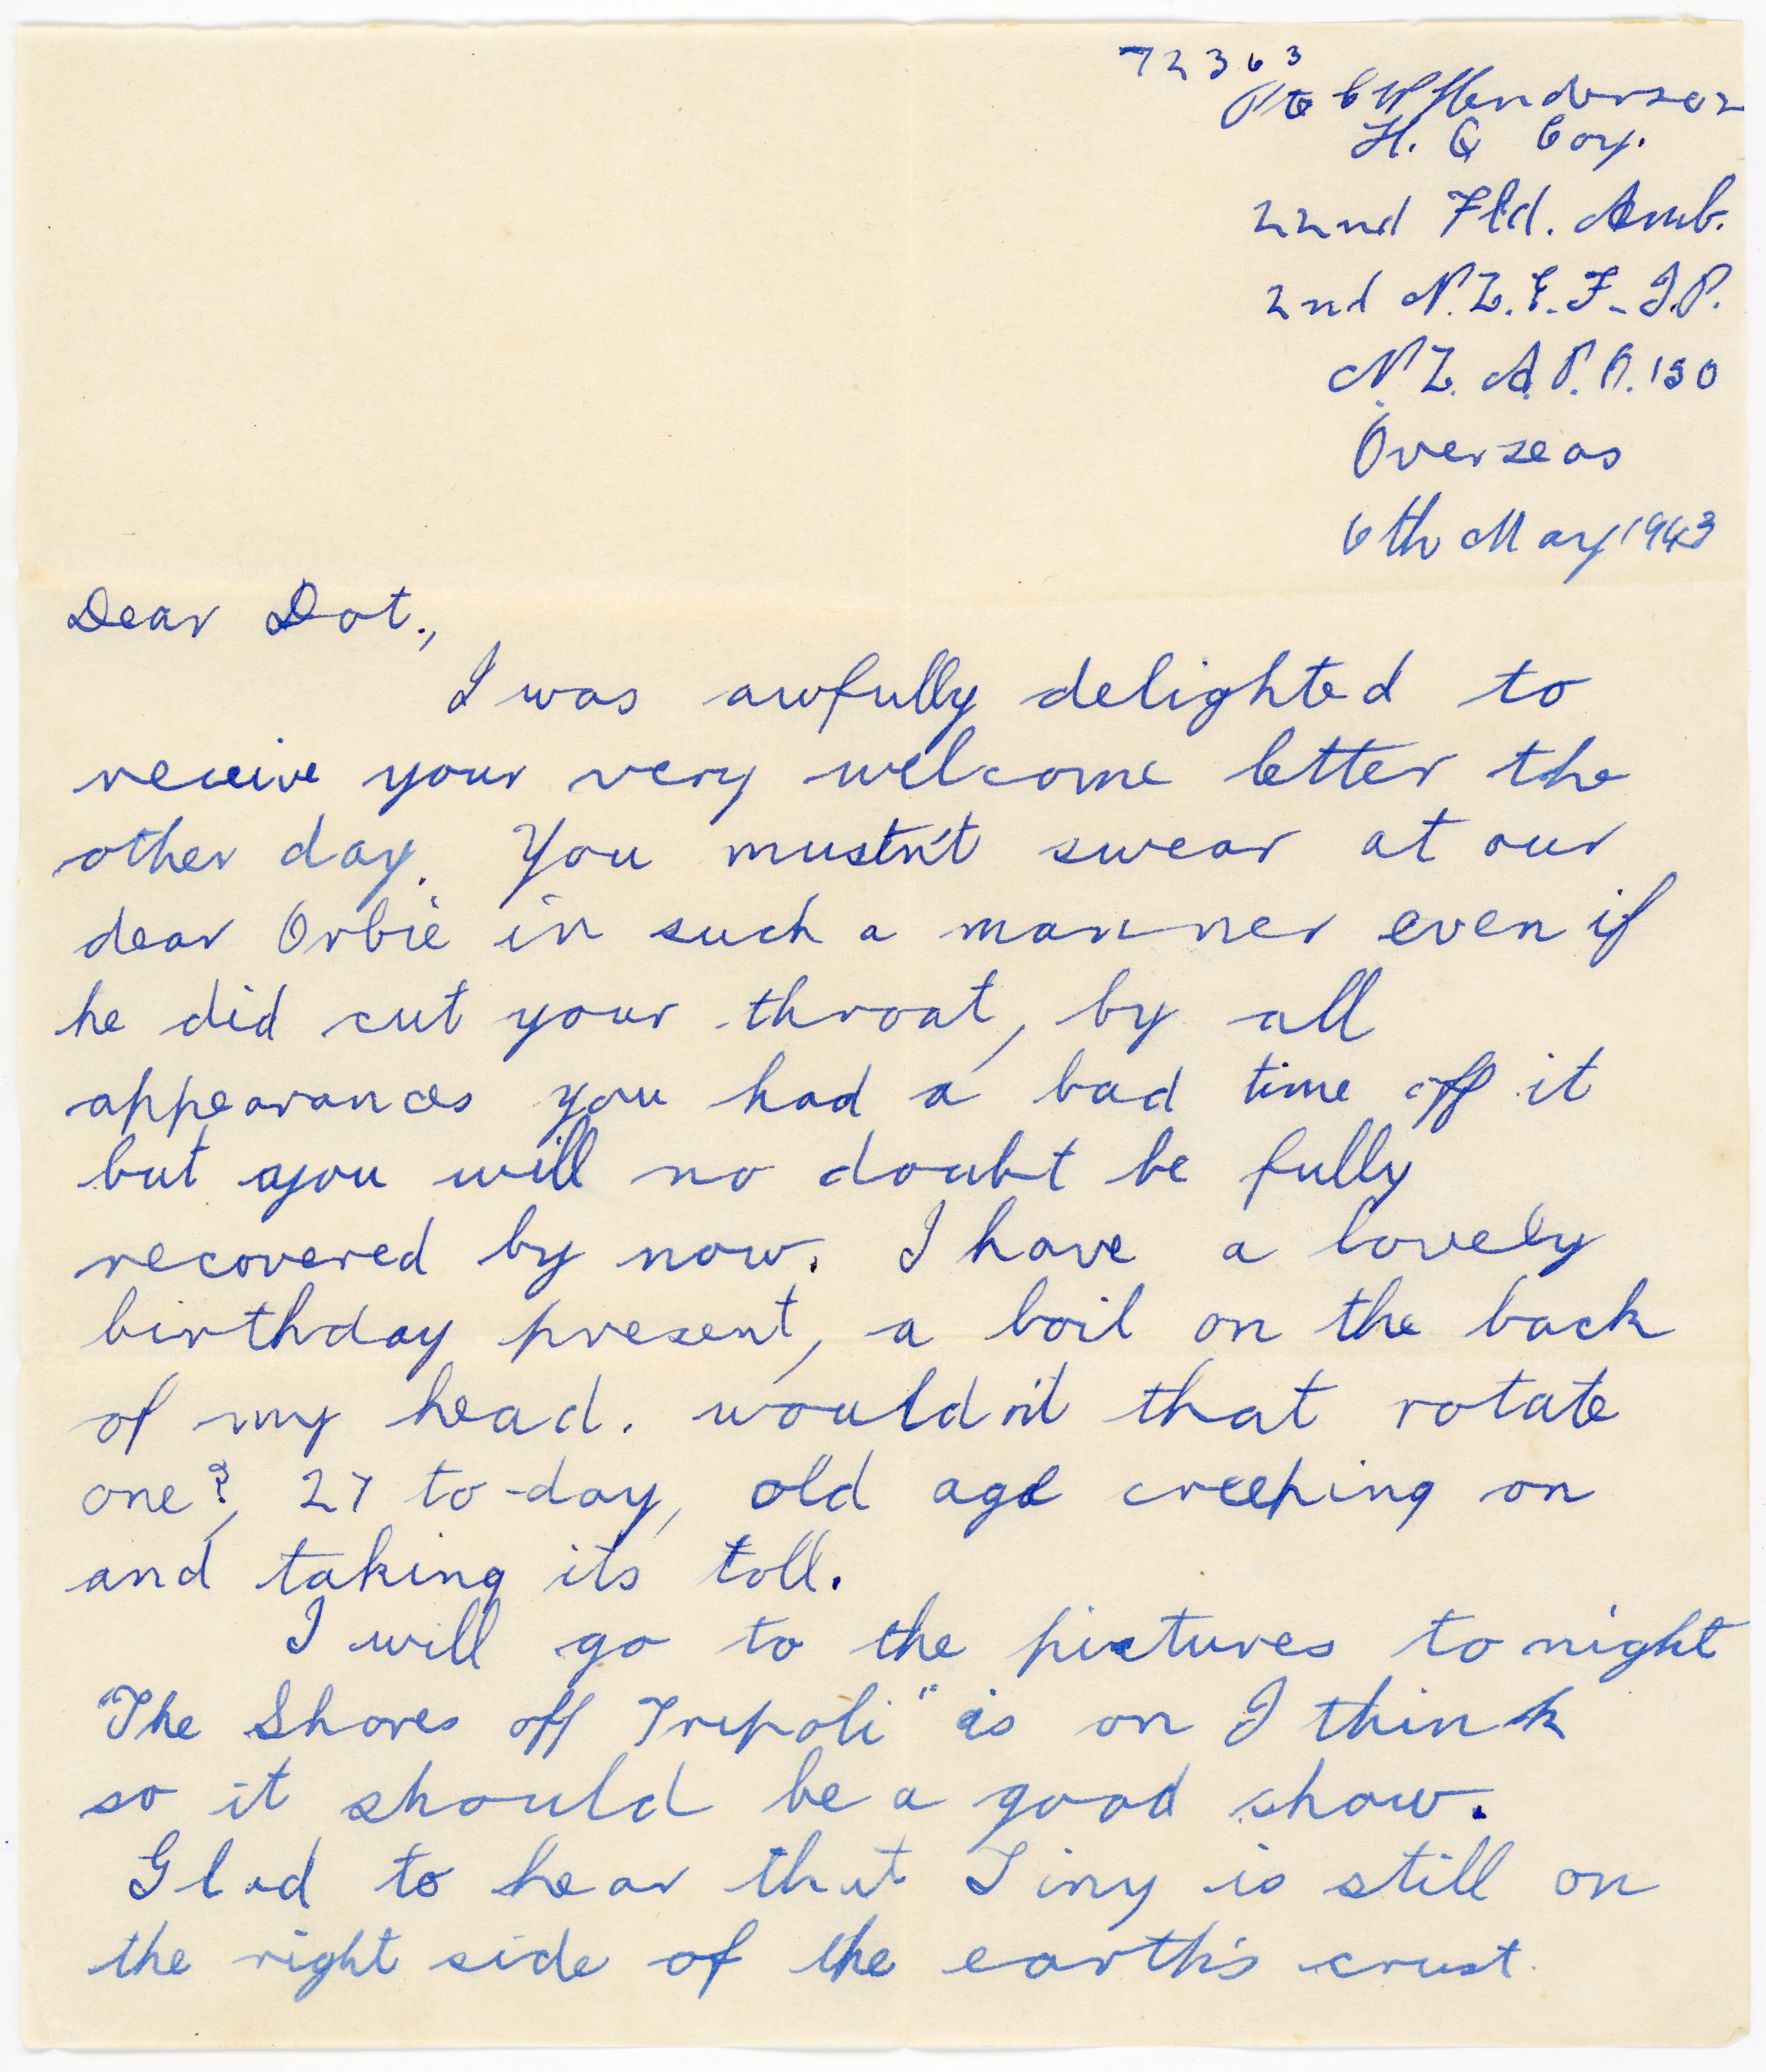 72363
Pte C W Henderson
H. Q Coy.
22nd Fld. Amb.
2nd N.Z.E.F. I.P.
N.Z. A.P.O. 150
Overseas
6th May 1943
Dear Dot.,
I was awfully delighted to
receive your very welcome letter the
other day. You mustn't swear at our
dear Orbie in such a manner even if
he did cut your throat, by all
appearances you had a bad time off it
but you will no doubt be fully
recovered by now. I have a lovely
birthday present, a boil on the back
of my head. wouldn't that rotate
one?, 27 to-day, old age creeping on
and taking its toll.
I will go to the pictures to night
"The Shores off Tripoli" is on I think
so it should be a good show.
Glad to hear that Tiny is still on
the right side of the earth's crust.